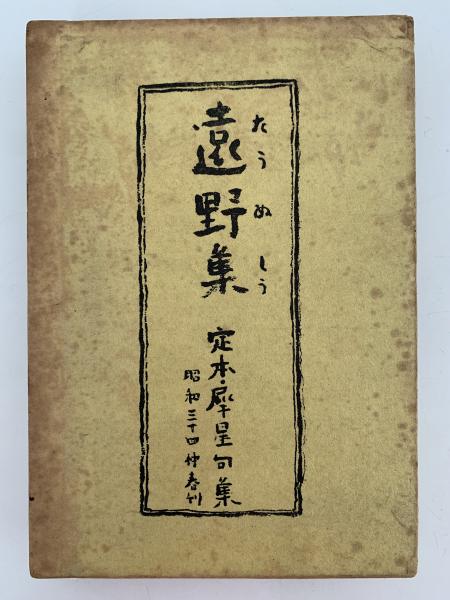 遠野集
たうぬしう
定本・犀星句集
昭和三十四仲春刊